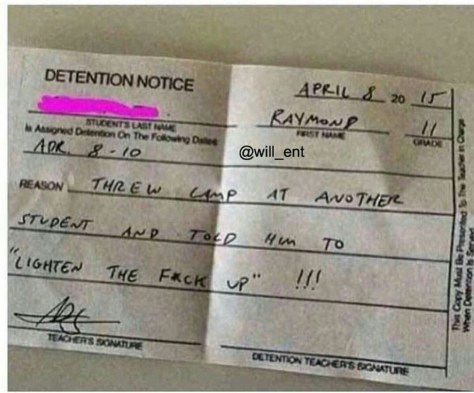 DETENTION NOTICE
APRIL 8 20 15
RAYMOND 11
STUDENT'S LAST NAME FIRST NAME GRADE
Is Assigned Detention On The Following Dates
@will_ent
APR. 8-10
REASON THREW LAMP AT ANOTHER
STUDENT AND TOLD HIM TO
"LIGHTEN THE F*CK UP" !!!
TEACHER'S SIGNATURE
DETENTION TEACHER'S SIGNATURE
This Copy Must Be Presented To The Teacher in Charge
When Detention Is Served